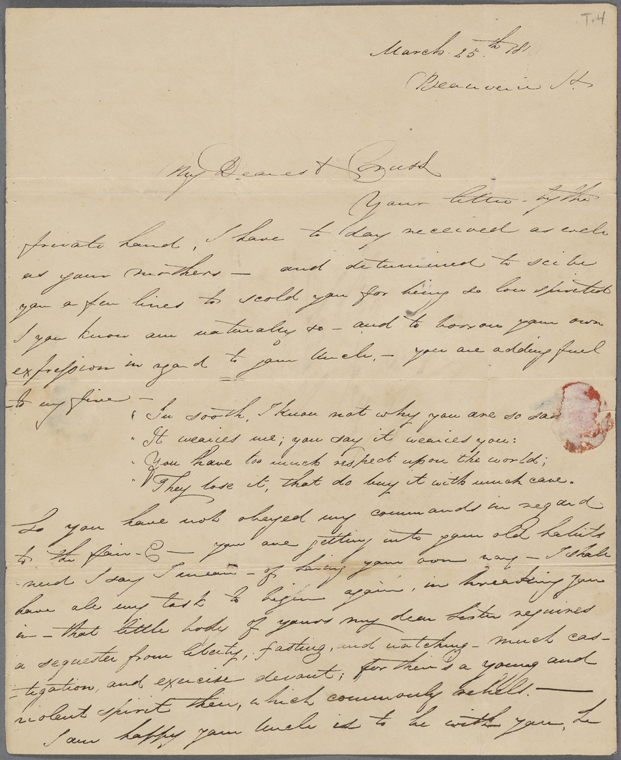 T.4
March 25th 18
Beauvoir St
My Dearest
Your letter by the
private hand, I have to day received as well
as your mothers — and determined to scribe
you a few lines to scold you for being so low spirited
I you know am naturally so — and to borrow your own
expression in regard to your Uncle, — you are adding fuel
to my fire —
"In sooth, I know not why you are so sad
"It wearies me; you say it wearies you:
"You have too much respect upon the world;
"They lose it, that do buy it with much care.
So you have not obeyed my commands in regard
to the fair — you are getting into your old habits
need I say I mean — of taking your own way — I shall
have all my task to begin again, in breaking you
in — that little body of yours my dear Sister requires
a sequester from liberty, fasting, and watching — much cas-
-tigation, and exercise devout; for there's a young and
violent spirit there, which commonly rebels. —
I am happy your Uncle is to be with you, he